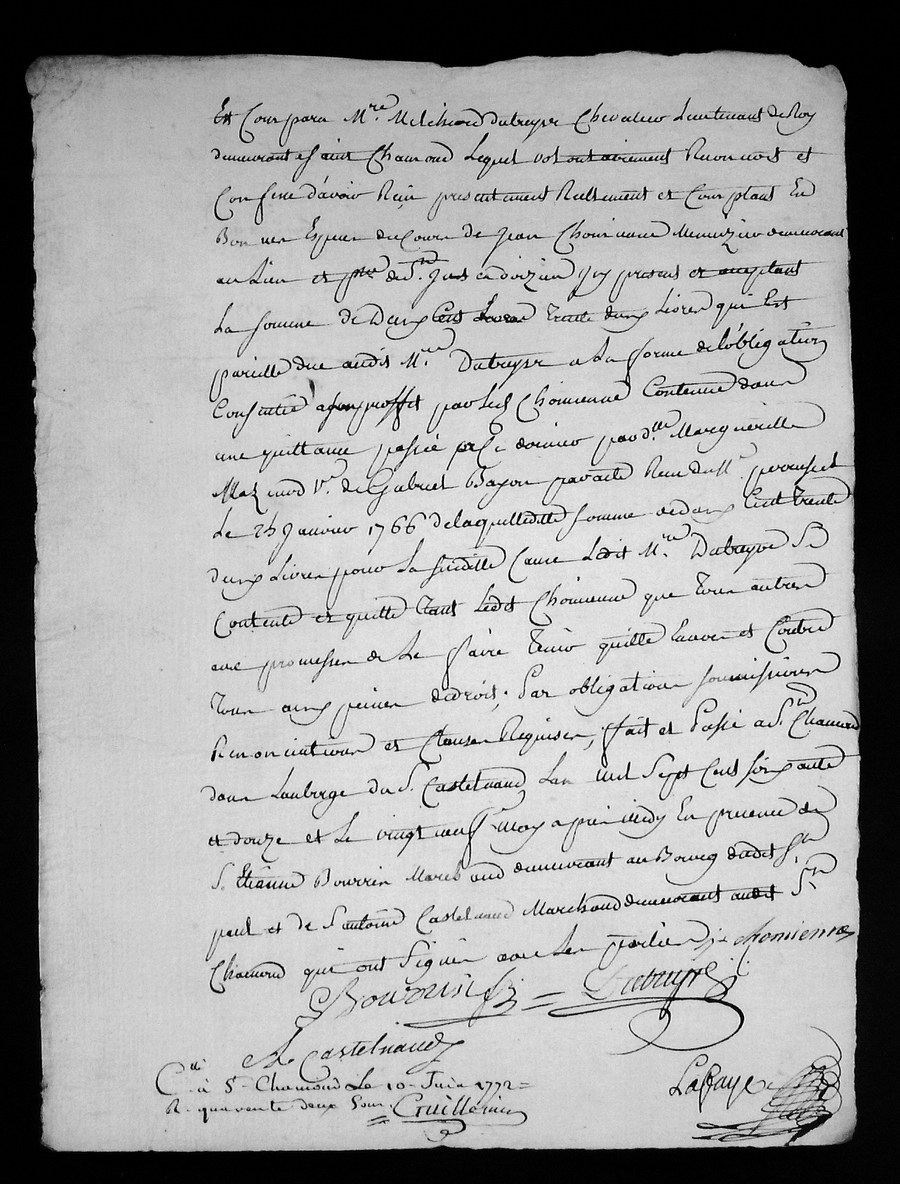 Est Comparu Mre. Melchiord dubreyre Chevalier Lieutenant de Roy
demeurant a saint Chamond Lequel volontairement Reconnoit et
Confesse d'avoir Reçu presentement Reellement et Comptant En
Bonnes Especes du Cours de Jean Choimenne Menuizier demeurant
au Lieu et prse de St. Just en doizieu icy present et acceptant
La somme de Deux Cent Trente deux Livres qui Est
pareille due audit Mre. Dubreyre a La forme de L'obligation
Consentie a son proffit par led. Choimenne Contenue dans
une quittance passée par dlle. Margueritte
Mazenod Ve. de Gabriel Bayon par acte Recu du Me.
Le 24 Janvier 1766 de laquelle ditte somme de deux Cent Trente
deux Livres pour La susditte Cause Ledit Mre. Dubreyre Se
Contente et quitte tant Ledit Choimenne que tous autres
avec promesses de Le faire Tenir quitte Envers et Contre
Tous aux peines de droit; Par obligations soumissions
Renonciations et Clauses Requises, fait et Passé a St. Chamond
dans L'auberge du Sr. Castelnaud L'an mil Sept Cent soixante
et douze et Le vingt neuf may apres midy En presence de
Sr. Etienne Bourrin Marchand demeurant au Bourg dudit St.
paul et de Sr. antoine Castelnaud Marchand demeurant audit St.
Chamond qui ont Signé avec Les parties j. chomienne
Bourrin = Dubreyre
A Castelnaud
Ctlé à St. Chamond Le 10 Juin 1772 =
R. quarente deux sous Guillermin
Lafaye